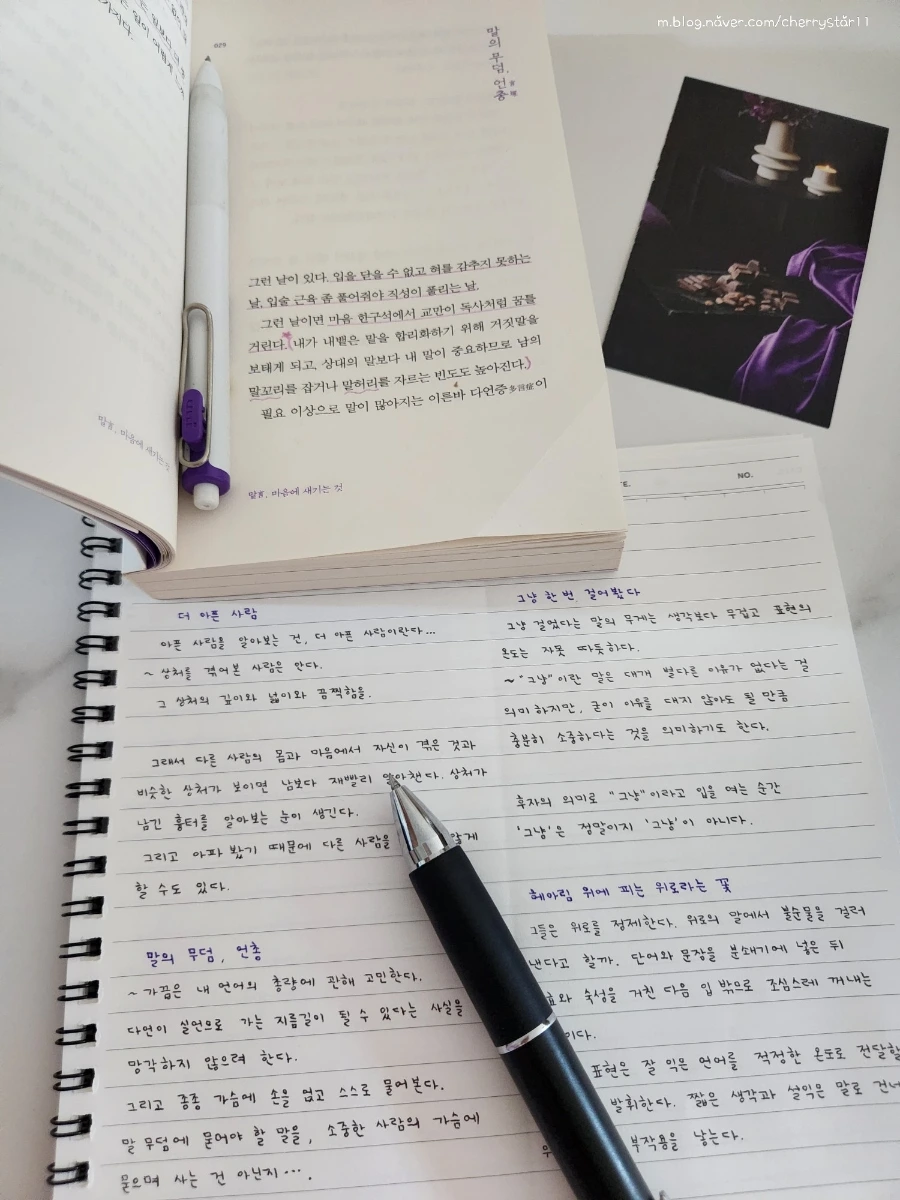 m.blog.naver.com/cherrystar11
029
말의 무덤, 언총
그런 날이 있다. 입을 닫을 수 없고 혀를 감추지 못하는
날, 입술 근육 좀 풀어줘야 직성이 풀리는 날.
그런 날이면 마음 한구석에서 교만이 독사처럼 꿈틀
거린다. 내가 내뱉은 말을 합리화하기 위해 거짓말을
보태게 되고, 상대의 말보다 내 말이 중요하므로 남의
말꼬리를 잡거나 말허리를 자르는 빈도도 높아진다.
필요 이상으로 말이 많아지는 이른바 다언증多言症이
말言, 마음에 새기는 것
말言, 마음에 새기는 것
NO.
더 아픈 사람
아픈 사람을 알아보는 건, 더 아픈 사람이란다...
~ 상처를 겪어본 사람은 안다.
그 상처의 깊이와 넓이와 끔찍함을.
그래서 다른 사람의 몸과 마음에서 자신이 겪은 것과
비슷한 상처가 보이면 남보다 재빨리 알아챈다. 상처가
남긴 흉터를 알아보는 눈이 생긴다.
그리고 아파 봤기 때문에 다른 사람을
할 수도 있다.
말의 무덤, 언총
~ 가끔은 내 언어의 총량에 관해 고민한다.
다언이 실언으로 가는 지름길이 될 수 있다는 사실을
망각하지 않으려 한다.
그리고 종종 가슴에 손을 얹고 스스로 물어본다.
말 무덤에 묻어야 할 말을, 소중한 사람의 가슴에
묻으며 사는 건 아닌지...
그냥 한 번 걸어봤다
그냥 걸었다는 말의 무게는 생각보다 무겁고 표현의
온도는 자못 따듯하다.
~ "그냥"이란 말은 대개 별다른 이유가 없다는 걸
의미하지만, 굳이 이유를 대지 않아도 될 만큼
충분히 소중하다는 것을 의미하기도 한다.
후자의 의미로 "그냥"이라고 입을 여는 순간
'그냥'은 정말이지 '그냥'이 아니다.
헤아림 위에 피는 위로라는 꽃
그들은 위로를 정제한다. 위로의 말에서 불순물을 걸러
낸다고 할까. 단어와 문장을 분쇄기에 넣은 뒤
숙성을 거친 다음 입 밖으로 조심스레 꺼내는
이다.
표현은 잘 익은 언어를 적정한 온도로 전달할
발휘한다. 짧은 생각과 설익은 말로 건네
부작용을 낳는다.